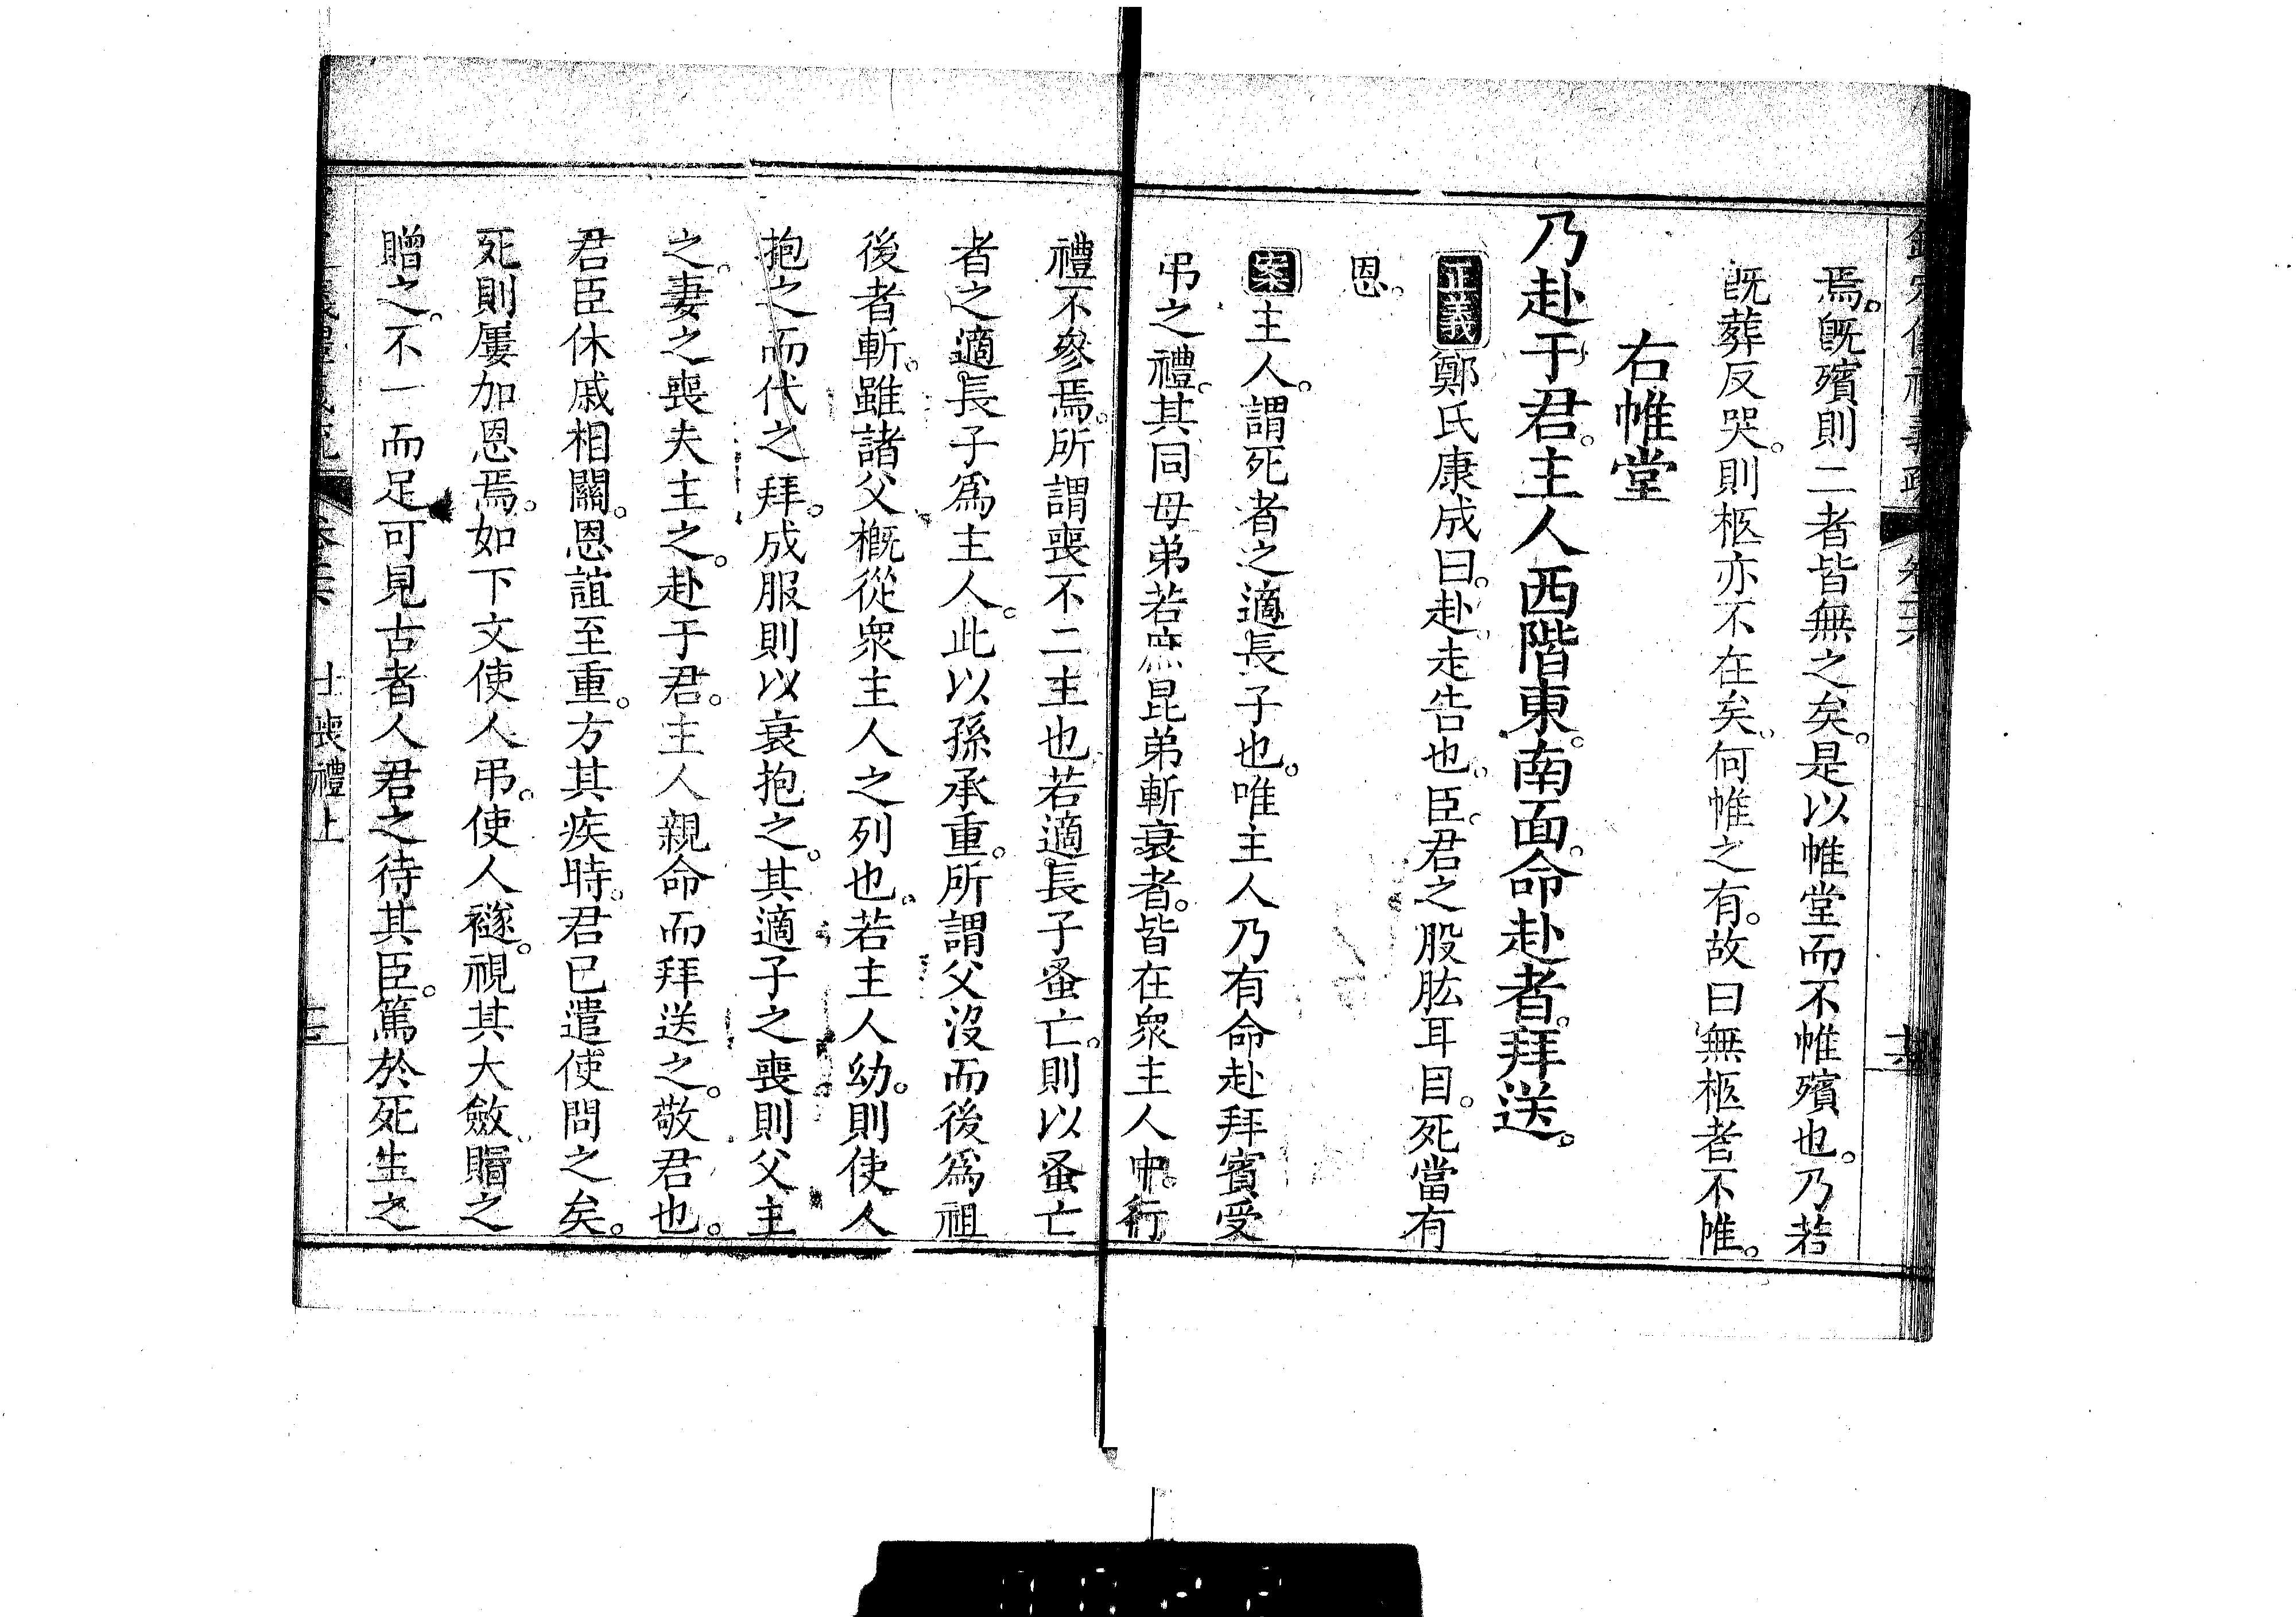 焉。旣殯則二者皆無之矣。是以帷堂而不帷殯也。乃若
旣葬反哭。則柩亦不在矣。何帷之有。故曰無柩者不帷。
右帷堂
乃赴于君。主人西階東。南面。命赴者。拜送。
正義鄭氏康成曰。赴。走告也。臣。君之股肱耳目。死當有
恩。
案主人。謂死者之適長子也。唯主人乃有命赴拜賓受
弔之禮。其同母弟若庶昆弟斬衰者。皆在衆主人中。行
禮不參焉。所謂喪不二主也若適長子蚤亡。則以蚤亡
者之適長子爲主人。此以孫承重。所謂父沒而後爲祖
後者斬。雖諸父槪從衆主人之列也。若主人幼。則使人
抱之而代之拜。成服則以衰抱之。其適子之喪則父主
之。妻之喪夫主之。赴于君。主人親命而拜送之。敬君也。
君臣休戚相關。恩誼至重。方其疾時。君已遣使問之矣。
死則屢加恩焉。如下文使人弔。使人襚。視其大斂。賵之
贈之。不一而足可見古者人君之待其臣。篤於死生之
士喪禮上